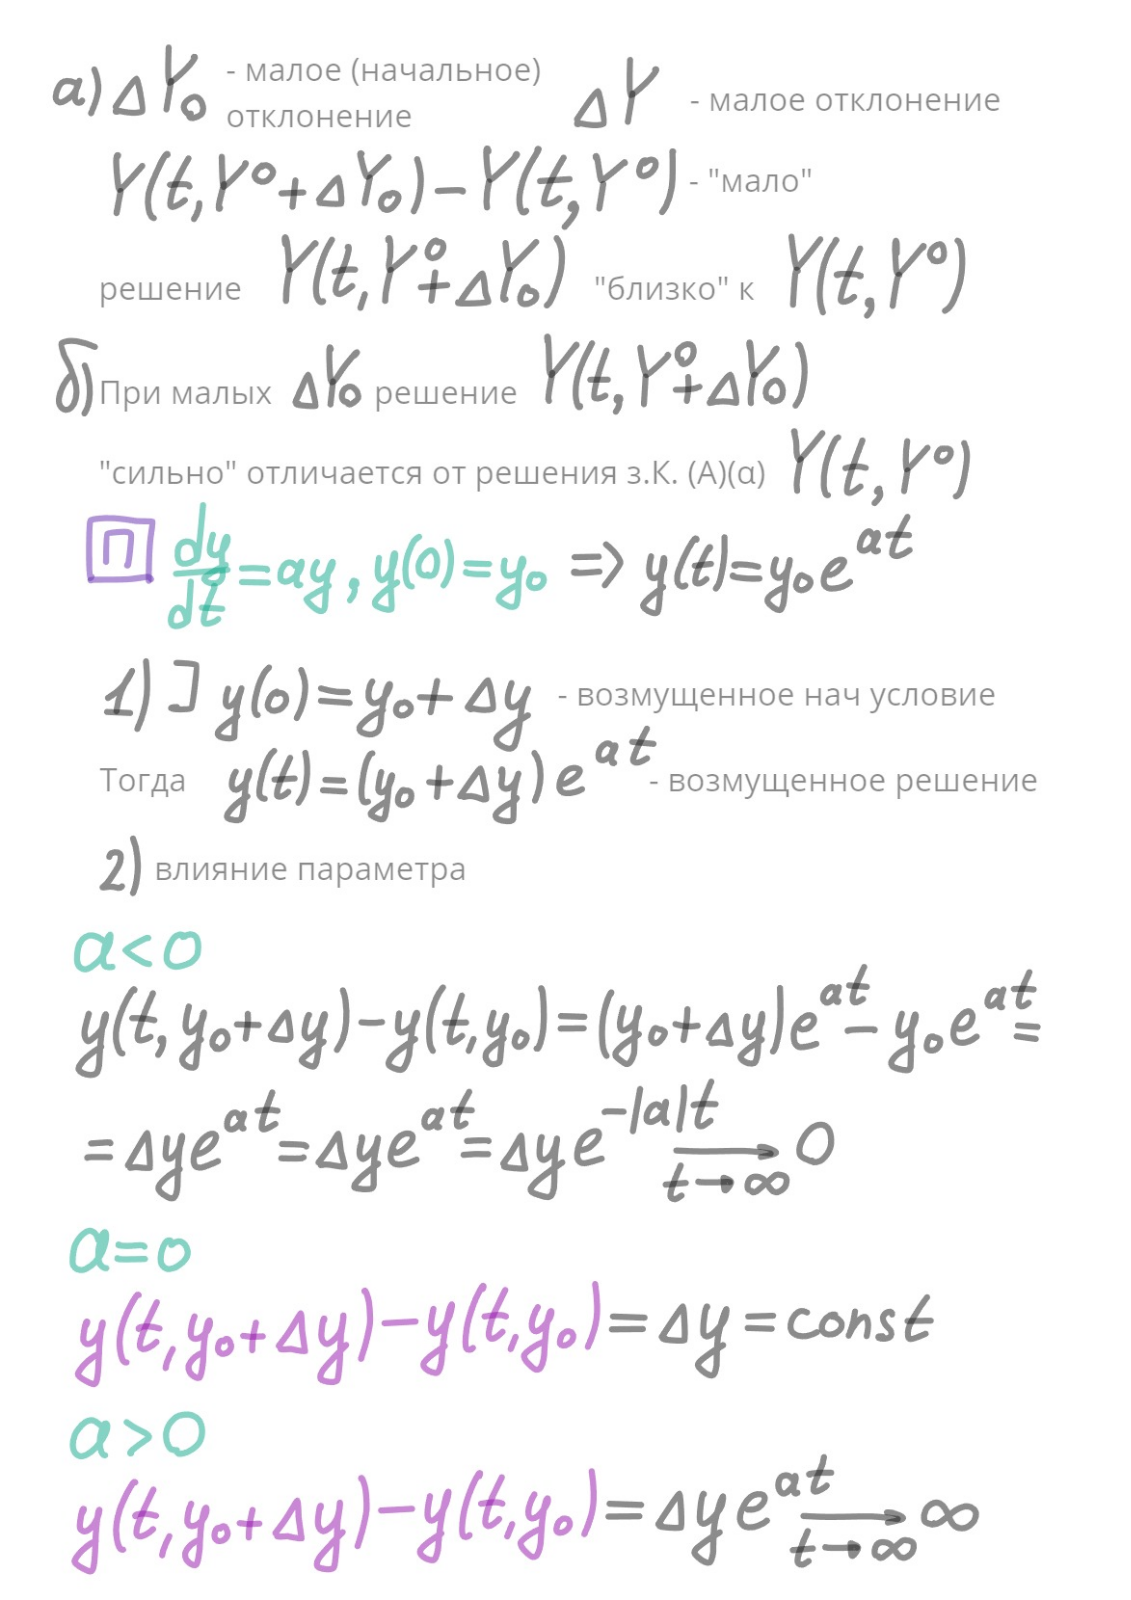 а) ΔY₀ - малое (начальное) отклонение ΔY - малое отклонение
Y(t,Y⁰+ΔY₀)-Y(t,Y⁰) - "мало"
решение Y(t,Y⁰+ΔY₀) "близко" к Y(t,Y⁰)
б) При малых ΔY₀ решение Y(t,Y⁰+ΔY₀)
"сильно" отличается от решения з.К. (А)(α) Y(t,Y⁰)
П dy/dt=ay, y(0)=y₀ => y(t)=y₀e^{at}
1) ] y(0)=y₀+Δy - возмущенное нач условие
Тогда y(t)=(y₀+Δy)e^{at} - возмущенное решение
2) влияние параметра
a<0
y(t,y₀+Δy)-y(t,y₀)=(y₀+Δy)e^{at}-y₀e^{at}=
=Δye^{at}=Δye^{at}=Δye^{-|a|t} ⟶ 0 t→∞
a=0
y(t,y₀+Δy)-y(t,y₀)=Δy=const
a>0
y(t,y₀+Δy)-y(t,y₀)=Δye^{at} ⟶ ∞ t→∞